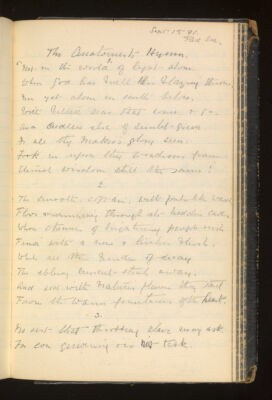 Sept 15" 91.
The Anatomist's Hymn.
"Not in the world of light alone
Where God has built His blazing throne
Nor yet alone in earth below,
With belted seas that come & go
And endless isles of sunlit green
Is all thy Maker's glory seen:
Look in upon thy wondrous frame
Eternal wisdom still the same!
2.
The smooth soft air, with pulse like waves
Flows murmuring through its hidden caves
Whose streams of brightening purple rush
Fired with a new & livelier blush,
While all the burden of decay
The ebbing current steals away,
And red with Nature's flame they start
From the warm fountains of the heart.
3.
No rest that throbbing slave may ask
For ever quivering o'er his task